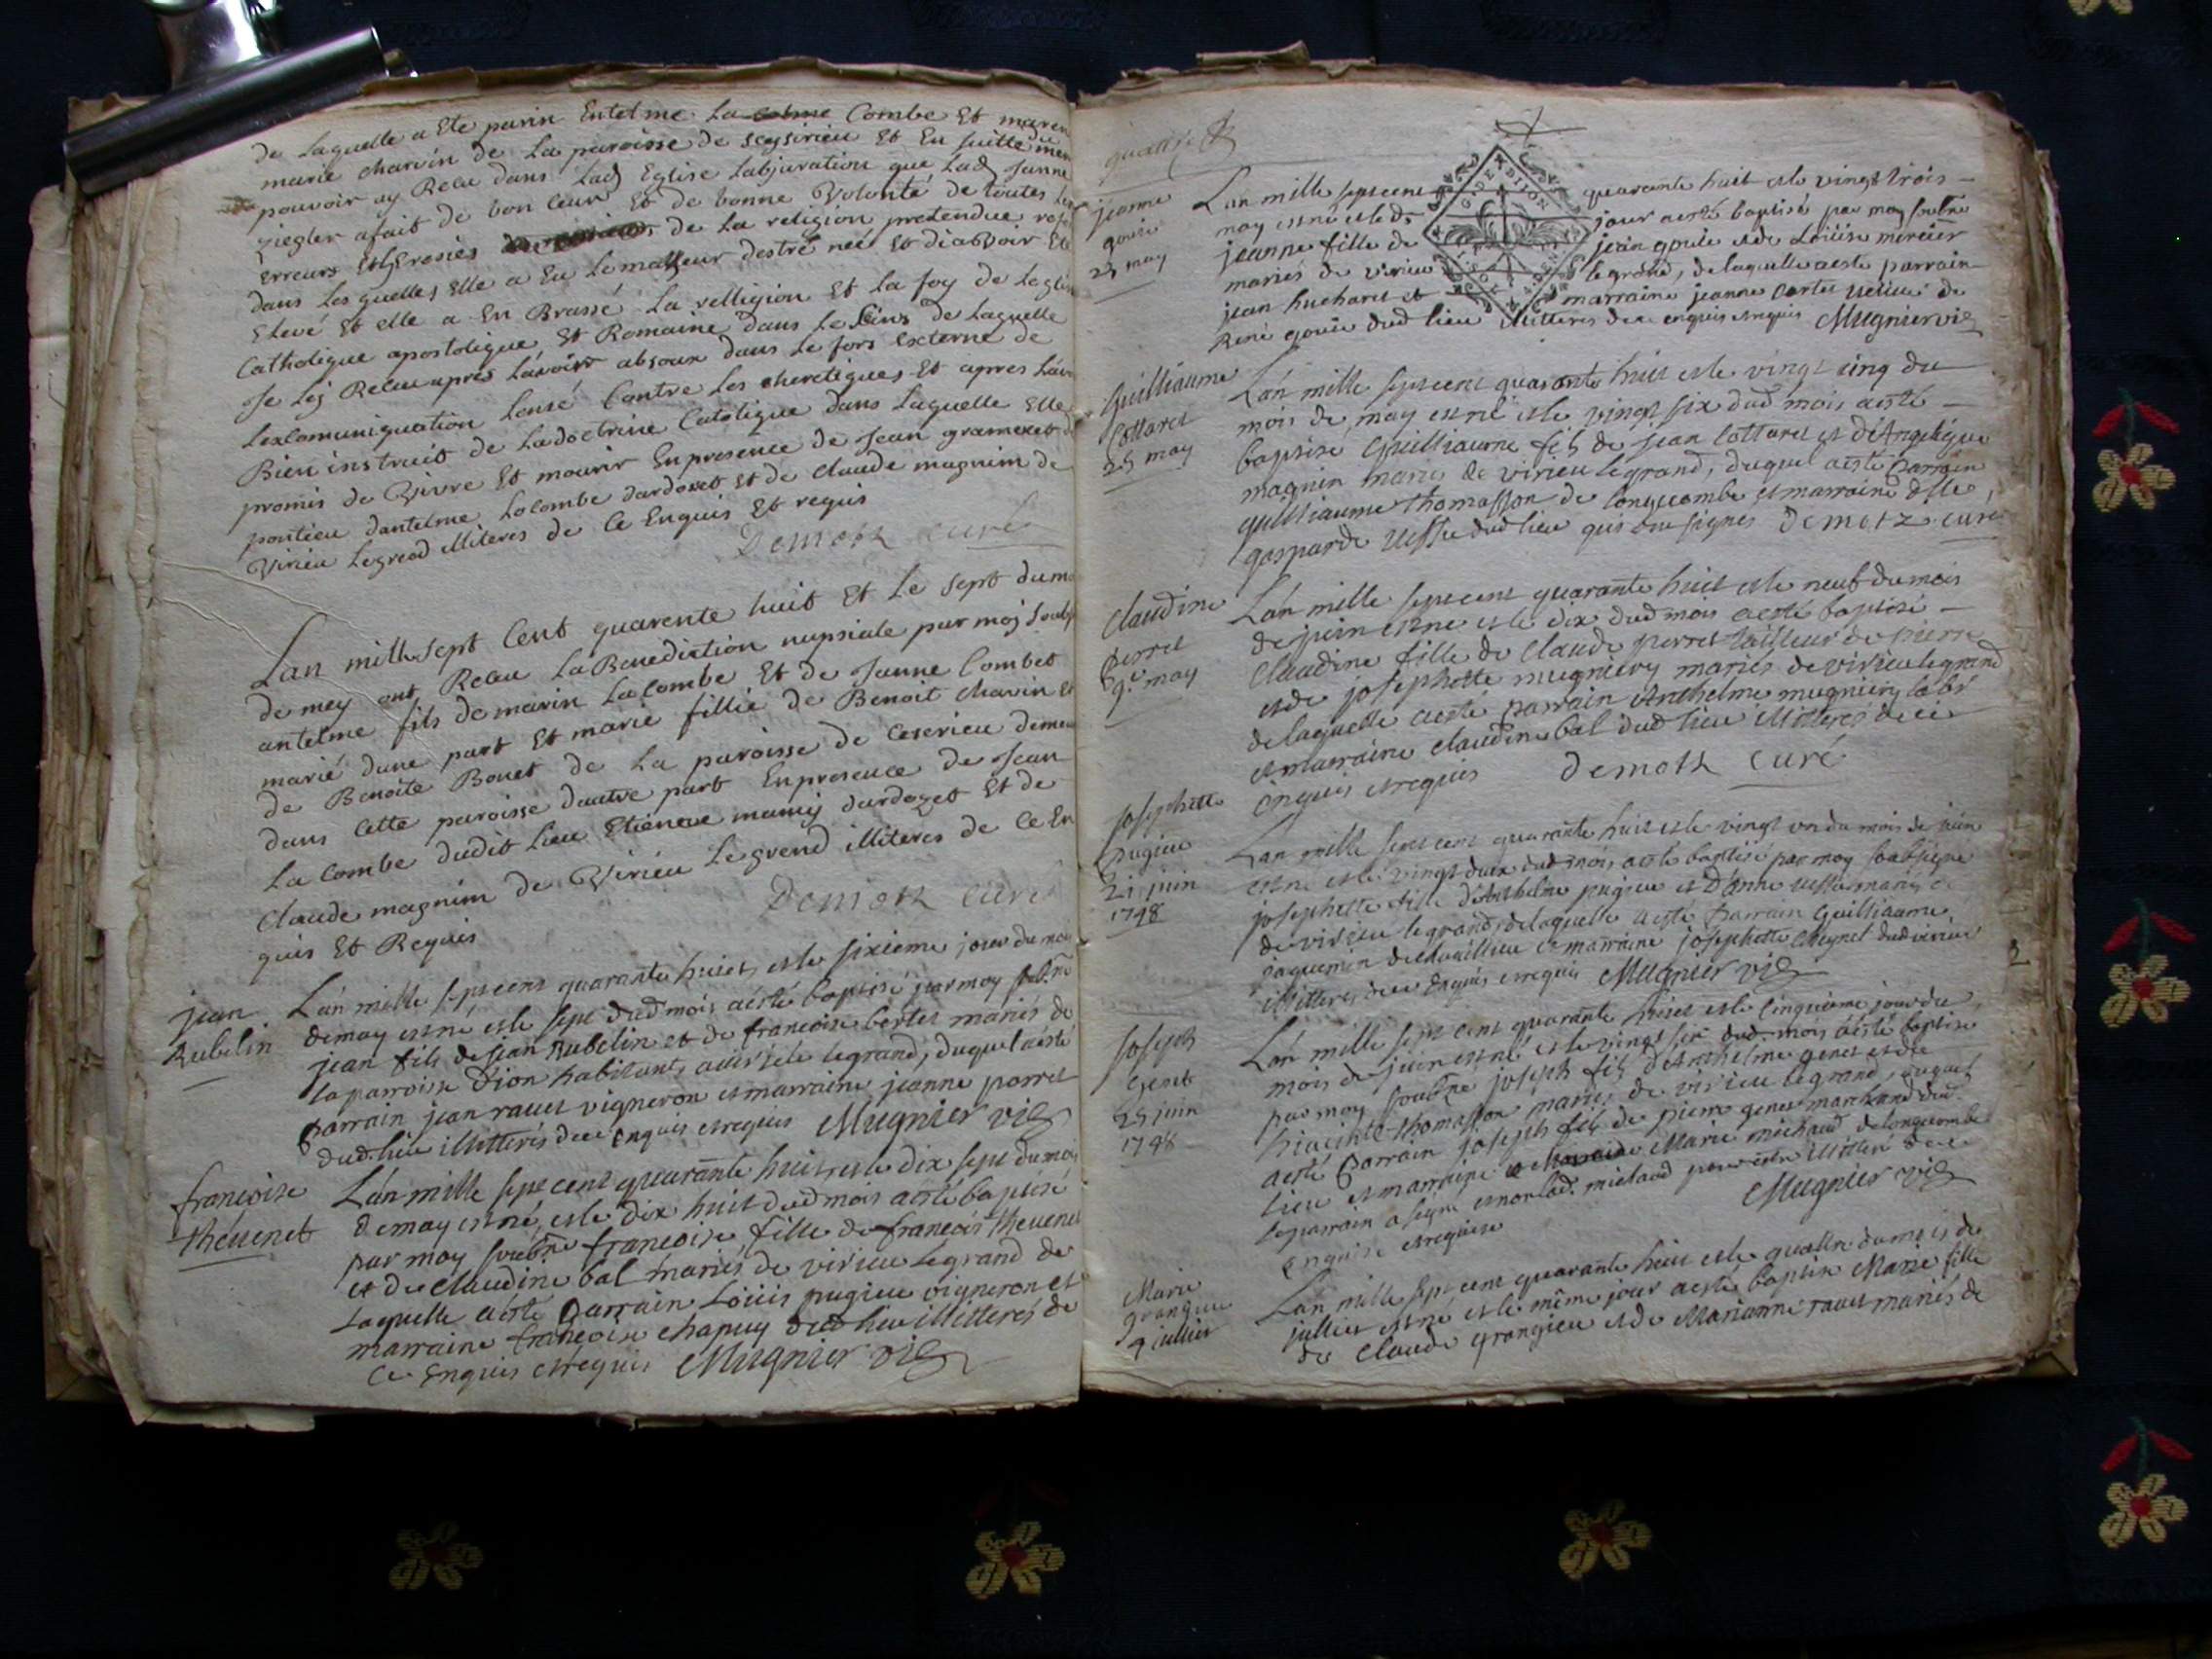 De Laquelle a Ete parin Entelme La Combe Et maren
marie charvin de La paroisse de seysirieu Et En suitte du
pouvoir ay Recu dans Lad Eglise Labjuration que Lad Janne
ziegler afait de bon Ceur Et de bonne Volonté de toutes Les
Erreurs Et heresies de La religion pretendue
dans Les quelles Elle a Eu Le malheur destre neé Et diavoir Ete
Elevé Et elle a En Brassé La relligion Et La foy de Legli
Catholique apostolique Et Romaine dans Le Seins de Laquelle
Je Lej Recu apres Lavoirr absoux dans Le fors Externe de
Lexcomuniquation Lensé Contre Les cheretiques Et apres Lavoi
Bien instruit de Ladoctrine Catolique dans Laquelle Elle
promis de Vivre Et mourir En presence de Jean
pontieu dantelme Lacombe dardosset Et de claude magnim de
Virieu Legrend illiteres de Ce Enquis Et requis
Demotz curé
Lan mill sept Cent quarente huit Et Le sept dumo
de mey ont Recu La Benediction nupsiale par moy
antelme fils de marin La Combe Et de Janne Combet
marié dune part Et marie fillie de Benoit charin Et
de Benoite Bonet de La paroisse de Ceserieu demeu
dans Cette paroisse dautre part En presence de Jean
La Combe dudit Lieu Etieneue mamij dardozet Et de
Claude magnim de Virieu Le grend illiteres de Ce En
quis Et Requis
Demotz curé
jean
Rubelin
Lan mille sept cent quarante huict, et le sixieme jour du moy
demay est né et le sept dud mois a esté baptisé par moy
jean fils de jean Rubelin et de francoise bertet mariés de
la parroisse Dion habitants a virieu le grand, duquel a esté
parrain jean ravet vigneron et marraine jeanne porret
dud. lieu illitterés de ce enquis et requis Mugnier vic
francoise
thevenet
Lan mille sept cent quarante huit, et le dix sept du moy
demay est né, et le dix huit dud mois a esté baptisé
par moy francoise, fille de francois thevenet
et de claudine bal mariés de virieu le grand de
laquelle a esté parrain Loüis pugieu vigneron et
marraine francoise chapuy dud lieu illitterés de
Ce Enquis et requis Mugnier vic
jeanne
goüie
23 may
G. DE DIJON
Lan mille sept cent quarante huit et le vingt trois
may est né et le d. jour a esté baptisé par moy
jeanne fille de jean goüie et de Loüise mercier
mariés de virieu le grand, de laquelle a esté parrain
jean huchard et marraine jeanne cartet veuve de
René goüie dud lieu illitterés de ce enquis et requis Mugnier vic
Guilliaume
Cottaret
25 may
Lan mille sept cent quarante huit et le vingt cinq du
mois de may est né et le vingt six dud mois a esté
baptisé Guilliaume fils de jean Cottaret et d'Angelique
magnin mariés de virieu le grand, duquel a esté parrain
guilliaume thomasson de longecombe et marraine
gasparde dud lieu qui ont signes Demotz curé
Claudine
perret
9e may
Lan mille sept cent quarante huit et le neuf du mois
de juin est né et le dix dud mois a esté baptisé
Claudine fille de Claude perret tailleur de pierre
et de josephette mugniery mariés de virieu le grand
de laquelle a esté parrain Anthelme mugniery
et marraine claudine bal dud lieu illitterés de ce
enquis et requis Demotz curé
josephette
pugieu
21 juin
1748
Lan mille sept cent quarante huit et le vingt un du mois de juin
est né et le vingt deux dud mois a esté baptisé par moy soubsigné
josephette fille d'Anthelme pugieu et d'Anne mariés
de virieu le grand, de laquelle a esté parrain Guilliaume
jaquemin et marraine josephette
illitterés de ce enquis et requis Mugnier vic
Joseph
Genet
25 juin
1748
Lan mille sept cent quarante huict et le Cinquieme jour du
mois de juin est né et le vingt six dud. mois a esté baptisé
par moy joseph fils d'Anthelme genet et de
hiacinte thomasson mariés de virieu le grand, duquel
a esté parrain joseph fils de pierre genet marchand dud
lieu et marraine Marie michaud de longecombe
le parrain a signé et non lad. michaud pour estre illitteré de ce
enquise et requise Mugnier vic
Marie
grangieu
4 juillet
Lan mille sept cent quarante huit et le quattre du mois de
juillet est né et le même jour a esté baptisé Marie fille
de Claude grangieu et de Marianne ravet mariés de